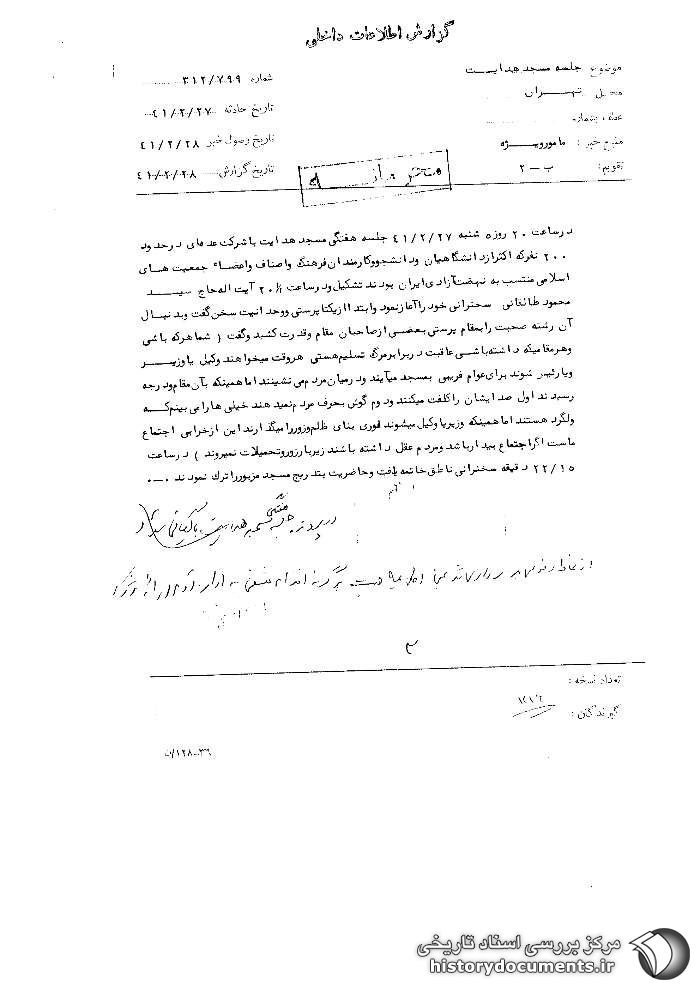 گزارش اطلاعات داخلی
موضوع جلسه مسجد هدایت
شماره ۳۱۲/۷۹۹
محل تهران
تاریخ حادثه ۴۱/۲/۲۷
عطف بشماره
تاریخ وصول خبر ۴۱/۲/۲۸
منبع خبر : مامور ویژه
تاریخ گزارش ۴۱/۲/۲۸
تقویم : ب - ۲
درساعت ۲۰ روزه شنبه ۴۱/۲/۲۷ جلسه هفتگی مسجد هدایت باشرکت عده‌ای در حدود
۲۰۰ نفر که اکثرا زدانشگاهیان ودانشجووکارمندان فرهنگ واصناف واعضاء جمعیت های
اسلامی منتسب به نهضت آزادی ایران بودند تشکیل ودرساعت ۲۰/۵ آیت اله حاج سید
محمود طالقانی سخنرانی خود را آغاز نمود وابتدا ازیکتا پرستی ووحدانیت سخن گفت وبدنبال
آن رشته صحبت رابمقام پرستی بعضی ازصاحبان مقام وقدرت کشید وگفت ( شما هرکه باشی
وهرمقامیکه داشته باشی عاقبت دربرابر مرگ تسلیم هستی هروقت میخواهند وکیل یا وزیر
ویا رئیس شوند برای عوام فریبی بمسجد میآیند ودرمیان مردم می نشینند اما همینکه بآن مقام ودرجه
رسیدند اول صدایشان راکلفت میکنند ودوم گوش بحرف مردم نمید هند خیلی ها را می بینم که
ولگرد هستند اما همینکه وزیریا وکیل میشوند فوری بنای ظلم وزور را میگذارند این ازخرابی اجتماع
ماست اگر اجتماع بیدار باشد ومردم عقل داشته باشند زیربار زور وتحمیلات نمیروند ) درساعت
۲۲/۱۵ دقیقه سخنرانی ناطق خاتمه یافت وحاضرین بتدریج مسجد مزبور را ترک نمودند .-.
هفتگی
در پرونده جلسه مسجد هدایت بایگانی شود
۳
تعداد نسخه :
گیرندگان :
مرکز بررسی اسناد تاریخی
historydocuments.ir